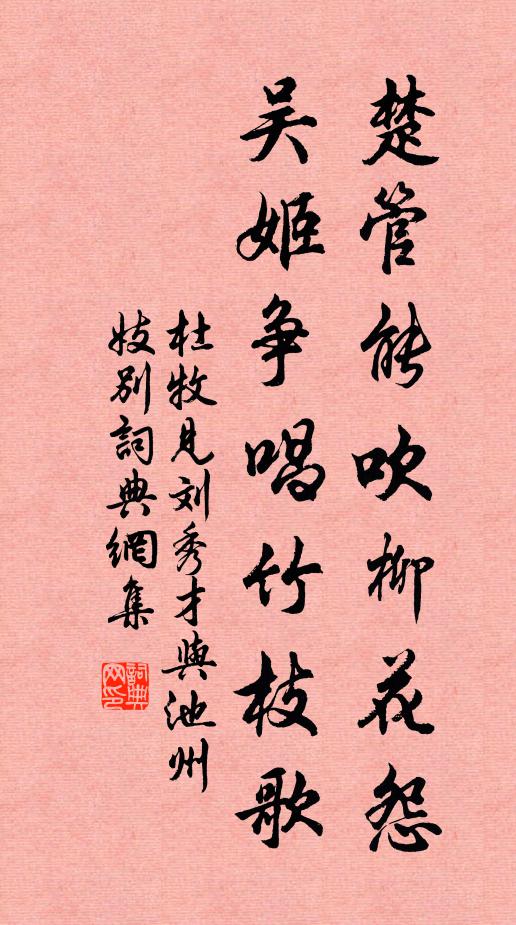 楚管能吹柳花怨
吴姬争唱竹枝歌
杜牧见刘秀才與池州
妓别詞典網集
詞典
网印